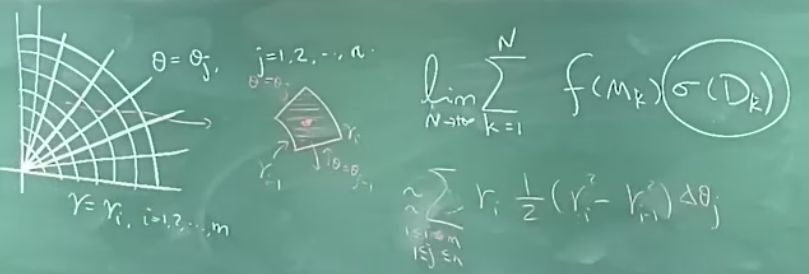 θ = θj, j=1,2,…,n.
θ=θj
ri
ri-1
θ=θj-1
r = ri, i=1,2,…,m
lim N→∞ ∑ k=1 N f(Mk) σ(Dk)
≈ ∑ 1≤i≤m 1≤j≤n ri 1/2 (ri² - ri-1²) Δθj